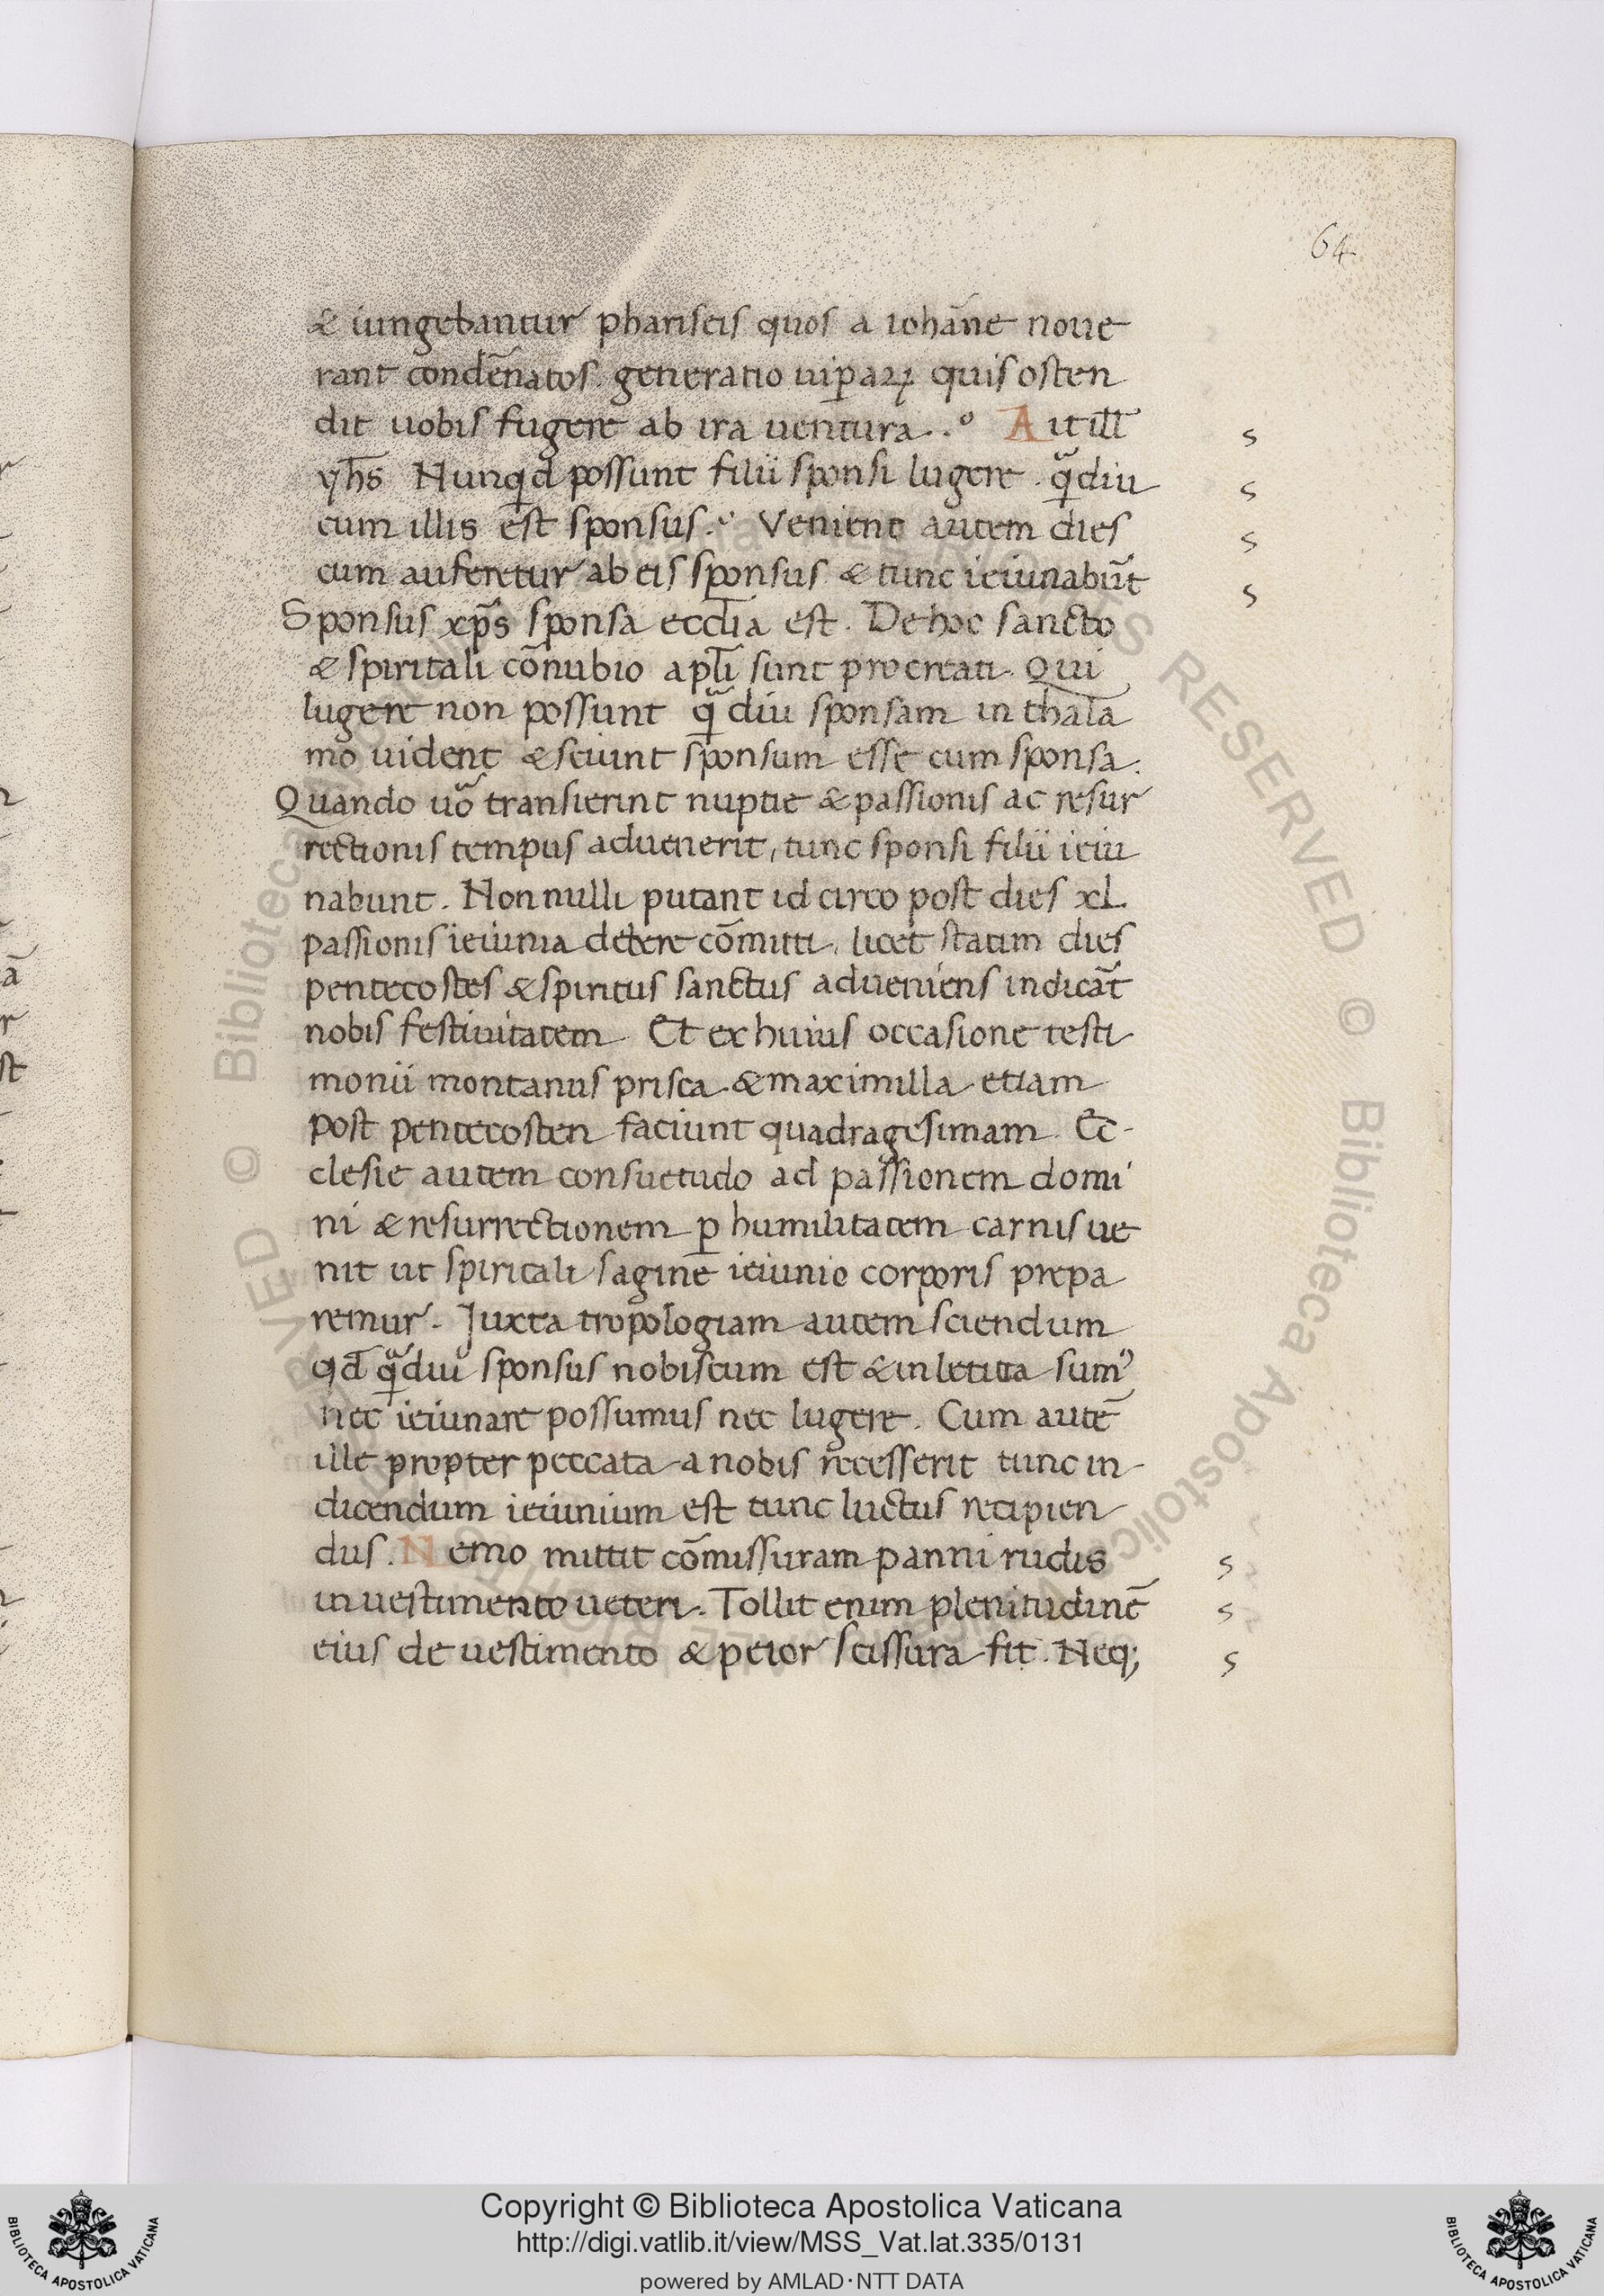 64
& iungebantur phariseis quos a iohāne noue
rant condēnatos. generatio uiꝑaꝝ quis osten
dit uobis fugere ab ira uentura. Ait ill̅
yh̅s Nunqid possunt filii sponsi lugere. qͣdiu
cum illis est sponsus. Venient autem dies
cum auferetur ab eis sponsus & tunc ieiunabūt
Sponsus xp̅s sponsa eccl̅ia est. De hoc sancto
& spiritali cōnubio apl̅i sunt procreati. Qui
lugere non possunt qͣ diu sponsam in thala
mo uident & sciunt sponsum esse cum sponsa.
Quando uͦo transierint nuptie & passionis ac resur
rectionis tempus aduenerit, tunc sponsi filii ieiu
nabunt. Non nulli putant id circo post dies xL
passionis ieiunia debere cōmitti. licet statim dies
pentecostes & spiritus sanctus adueniens indicāt
nobis festiuitatem Et ex huius occasione testi
monii montanus prisca & maximilla etiam
post pentecosten faciunt quadragesimam. Ec-
clesie autem consuetudo ad passionem domi
ni & resurrectionem ꝑ humilitatem carnis ue
nit ut spiritali sagine ieiunio corporis prepa
remur. Juxta tropologiam autem sciendum
qd̅ qͣdiu sponsus nobiscum est & in letitia sumꝰ
nec ieiunare possumus nec lugere. Cum autē
ille propter peccata a nobis recesserit tunc in-
dicendum ieiunium est tunc luctus recipien
dus. Nemo mittit cōmissuram panni rudis
in uestimento ueteri. Tollit enim plenitudinē
eius de uestimento & peior scissura fit. Neq;
s
s
s
s
s
s
s
Copyright © Biblioteca Apostolica Vaticana
http://digi.vatlib.it/view/MSS_Vat.lat.335/0131
powered by AMLAD·NTT DATA
BIBLIOTECA APOSTOLICA VATICANA
BIBLIOTECA APOSTOLICA VATICANA